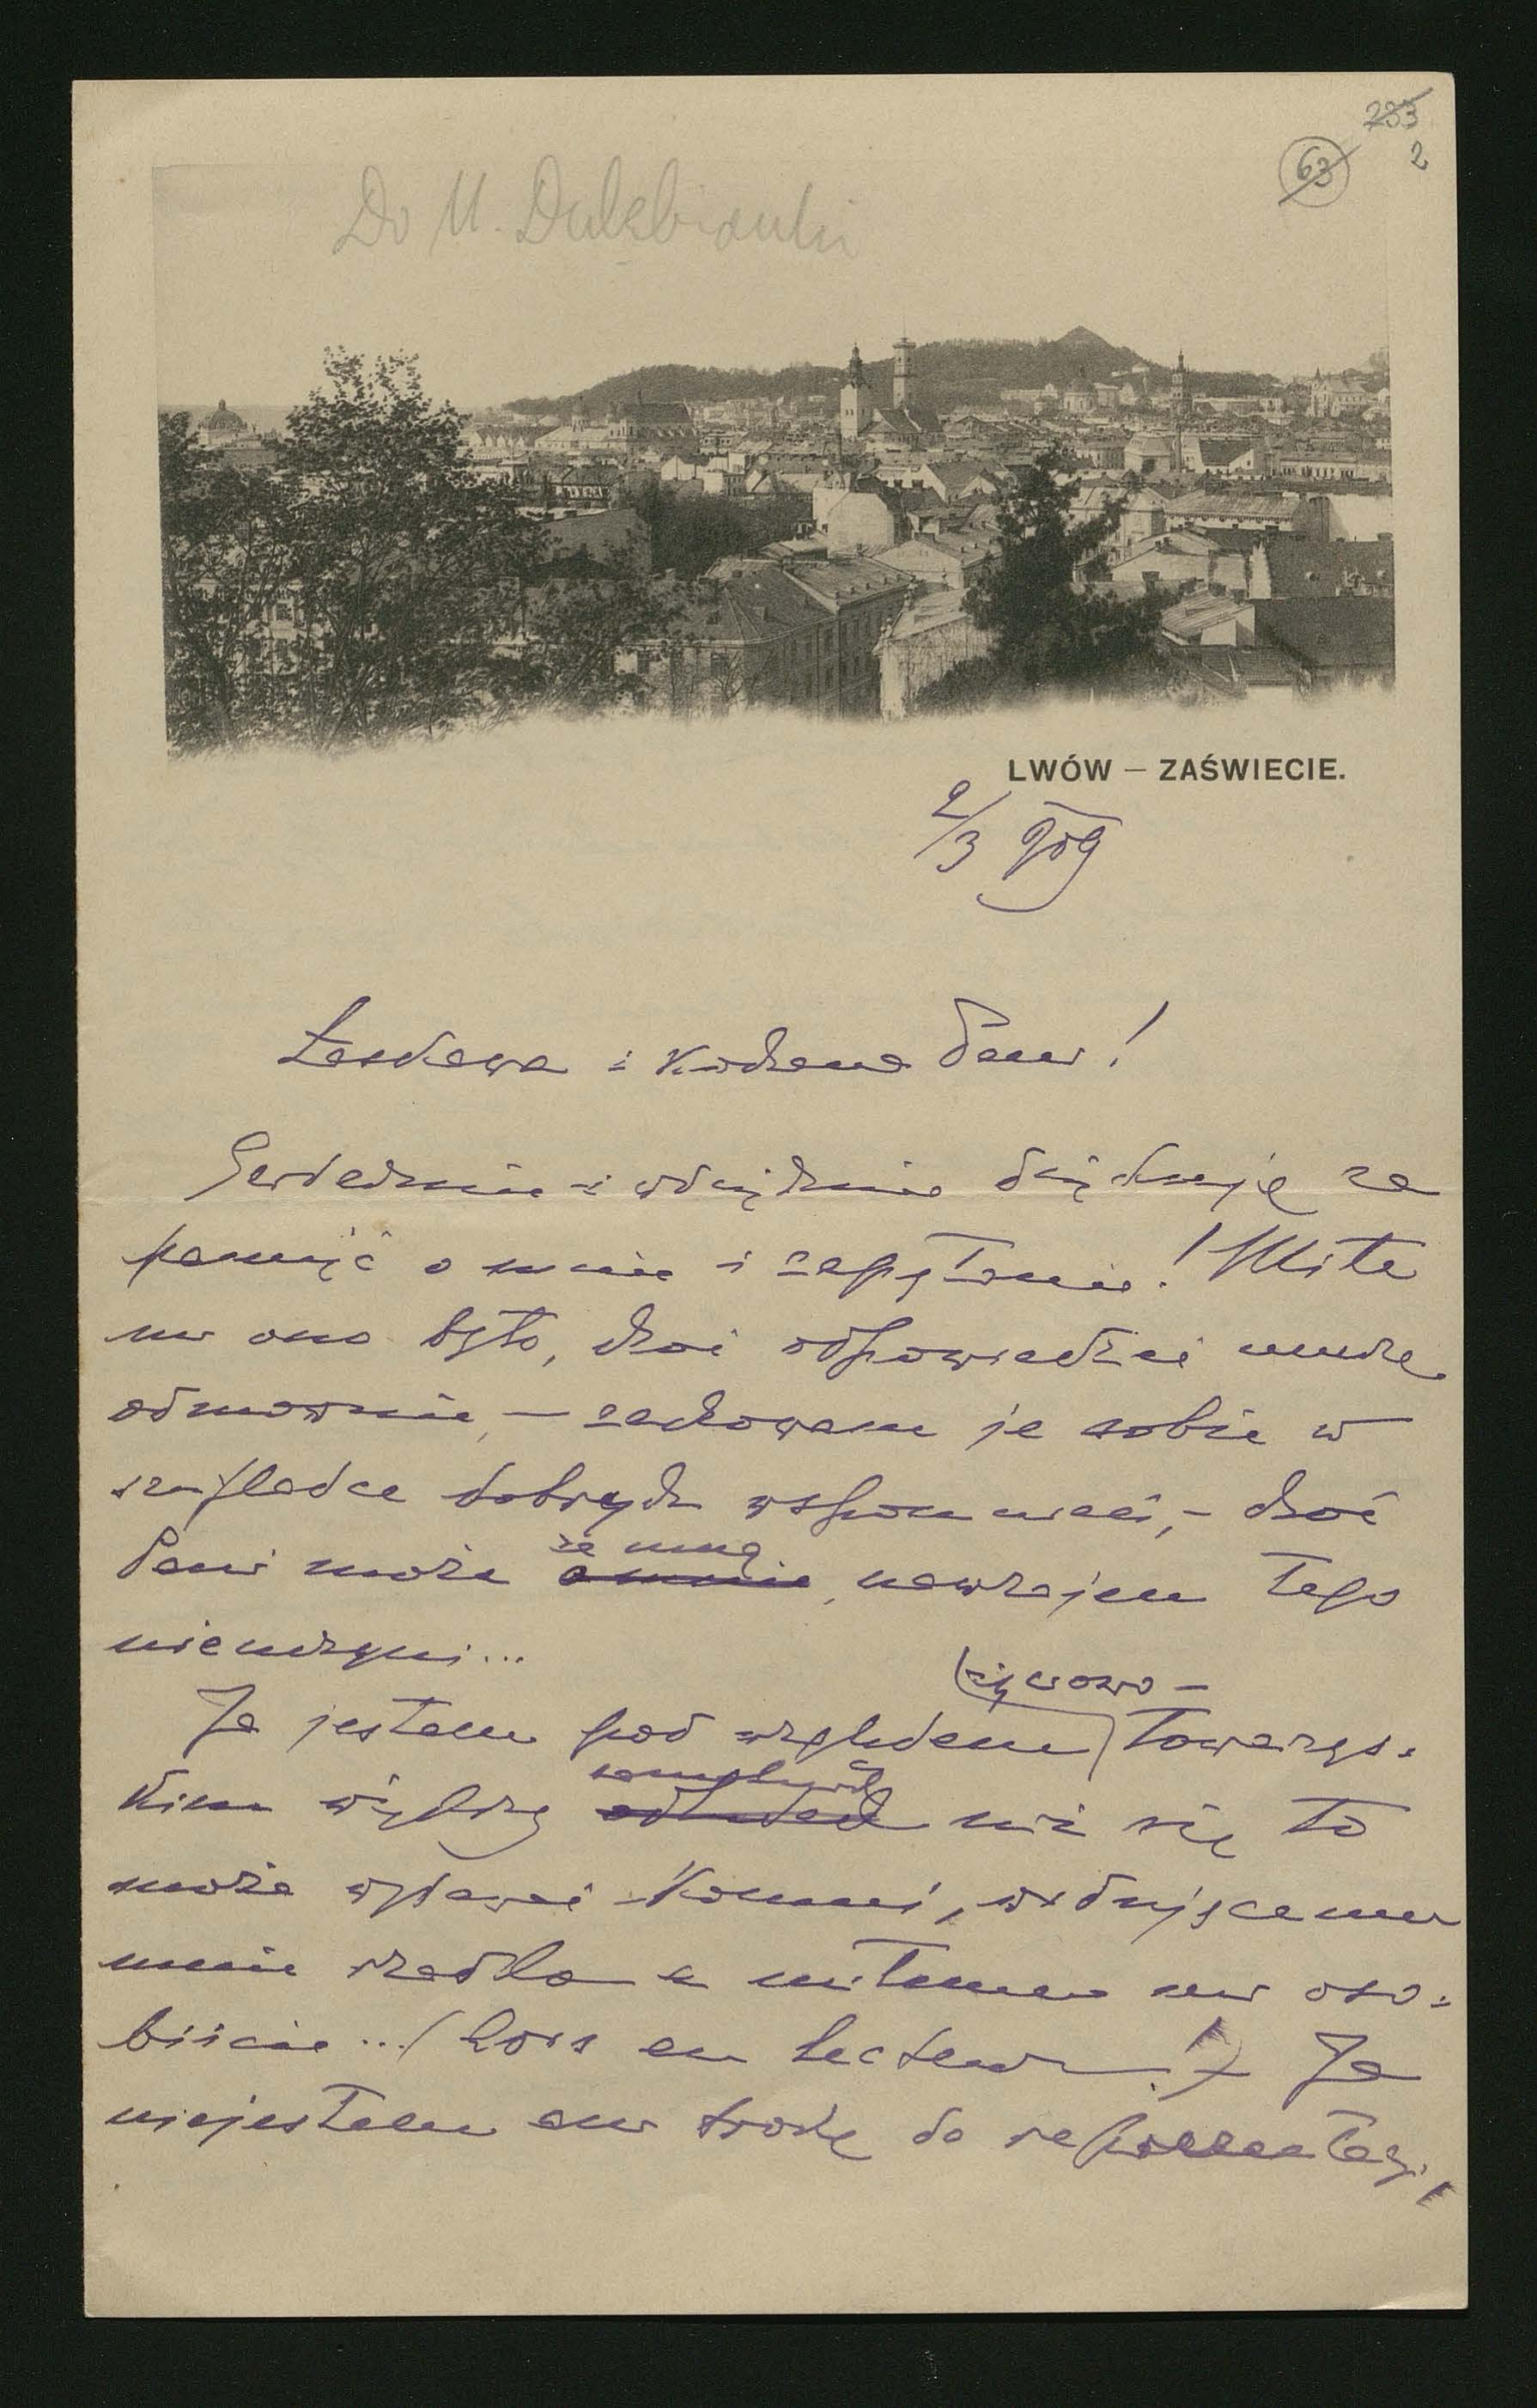 233
63 2
Do M. Dulębianki
LWÓW – ZAŚWIECIE.
2/3 909
Łaskawa i Kochana Pani!
Serdecznie i wdzięcznie dziękuję za
pamięć o mnie i zapytanie! Miłe
mi ono było, choć odpowiedzieć muszę
odmownie, – zachowam je sobie w
szufladce dobrych wspomnień, – choć
Pani może o mnie ze mną, nawzajem tego
nieuczyni...
Ja jestem pod względem życiowo- towarzys-
kim większy odludek niż się to
może wydawać komuś, widującemu
mnie rzadko a miłemu mi oso-
biście... (hors en lecteur!) Ja
niejestem ani trochę do